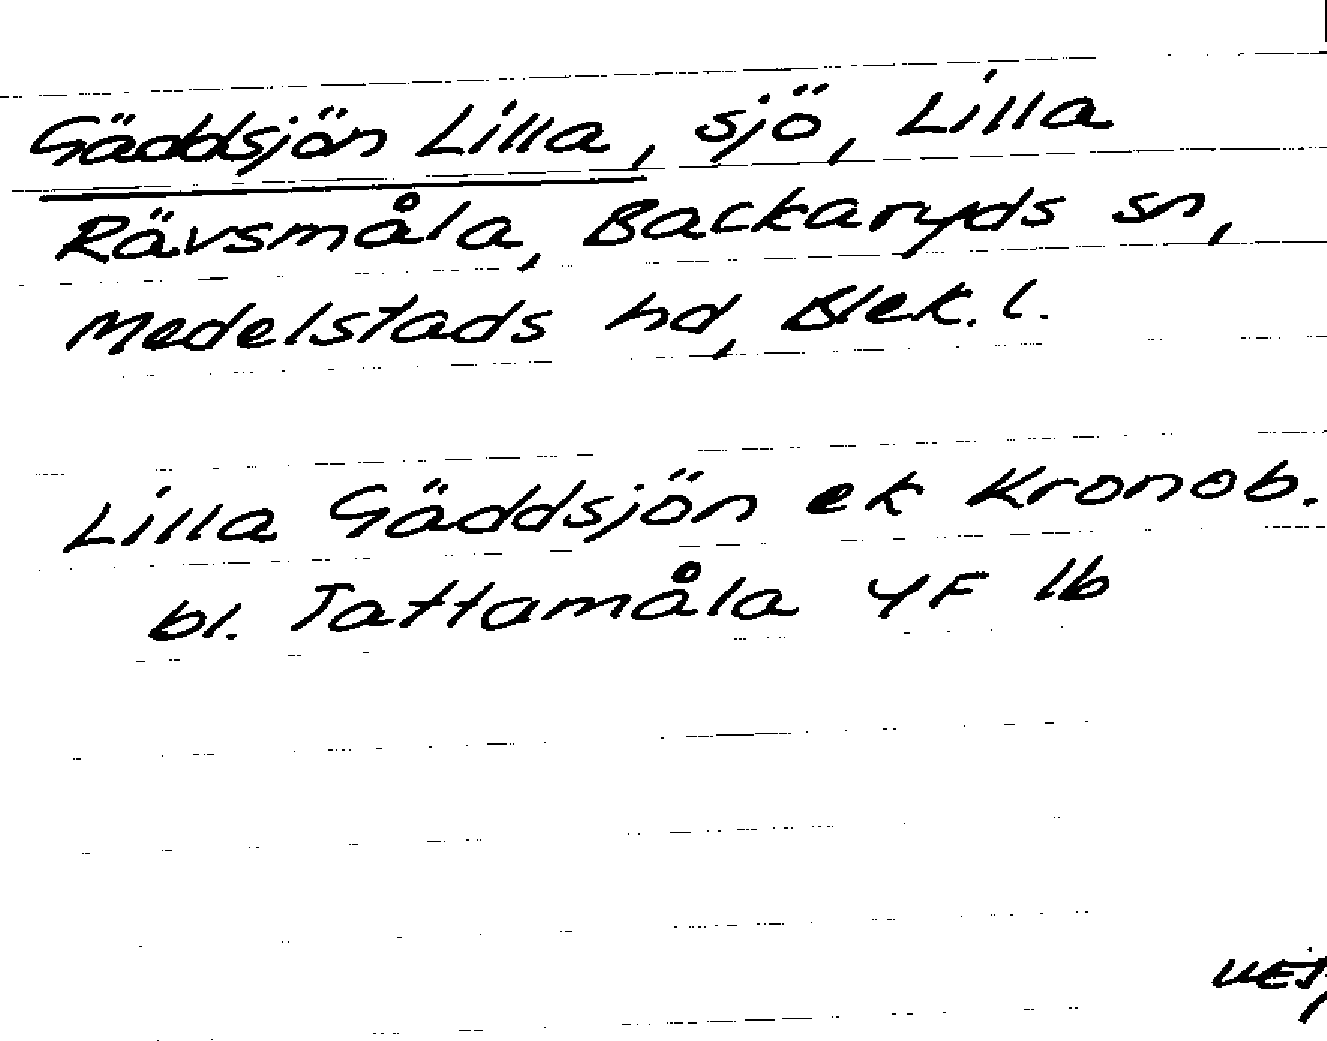 Gäddsjön Lilla, sjö, Lilla
Rävsmåla, Backaryds sn,
Medelstads hd, Blek. l.
Lilla Gäddsjön ek Kronob.
bl. Tattamåla 4F 1b